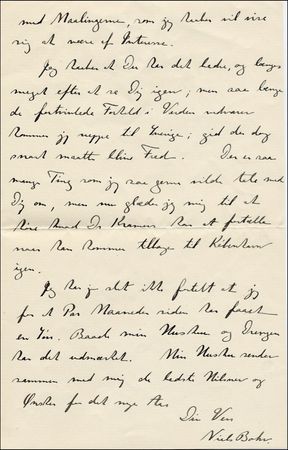 med Maalingerne, som jeg tror vil vise
sig at være af Interesse.
Jeg haaber at Du har det bedre, og længes
meget efter at se Dig igen; men saa længe
de fortvivlede Forhold i Verden vedvarer
kommer jeg neppe til Sverige; gid der dog
snart maatte blive Fred. Der er saa
mange Ting som jeg saa gerne vilde tale med
Dig om, men nu glæder jeg mig til at
høre hvad Dr Kramers har at fortælle
naar han kommer tilbage til København
igen.
Jeg har jo slet ikke fortalt at jeg
for et Par Maaneder siden har faaet
en Søn. Baade min Hustru og Drengen
har det udmærket. Min Hustru sender
sammen med mig de bedste Hilsner og
Ønsker for det nye Aar
Din Ven
Niels Bohr.